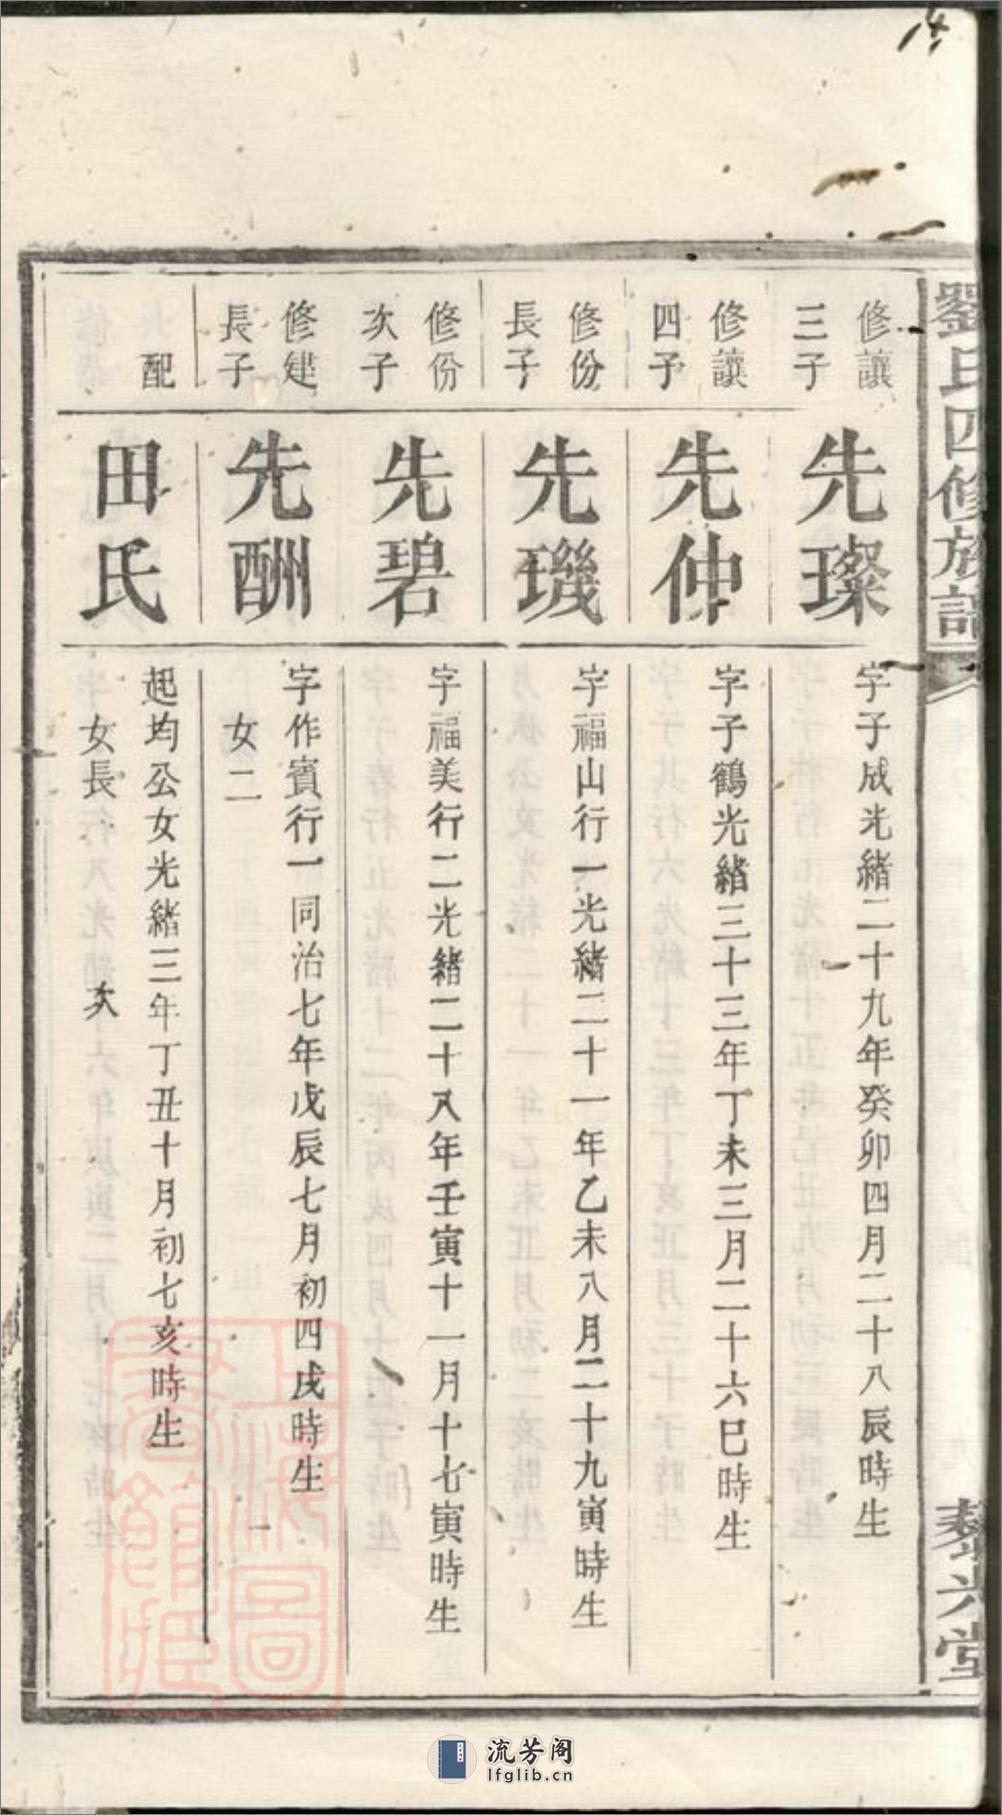 劉氏四修族譜
藜光堂
修讓
三子
先璨
字子成光緒二十九年癸卯四月二十八辰時生
修讓
四子
先仲
字子鶴光緒三十三年丁未三月二十六巳時生
修份
長子
先璣
字福山行一光緒二十一年乙未八月二十九寅時生
修份
次子
先碧
字福美行二光緒二十八年壬寅十一月十七寅時生
修建
長子
先酬
字作賓行一同治七年戊辰七月初四戌時生
女二
配
田氏
起均公女光緒三年丁丑十月初七亥時生
女長 次
流芳阁
lfglib.cn